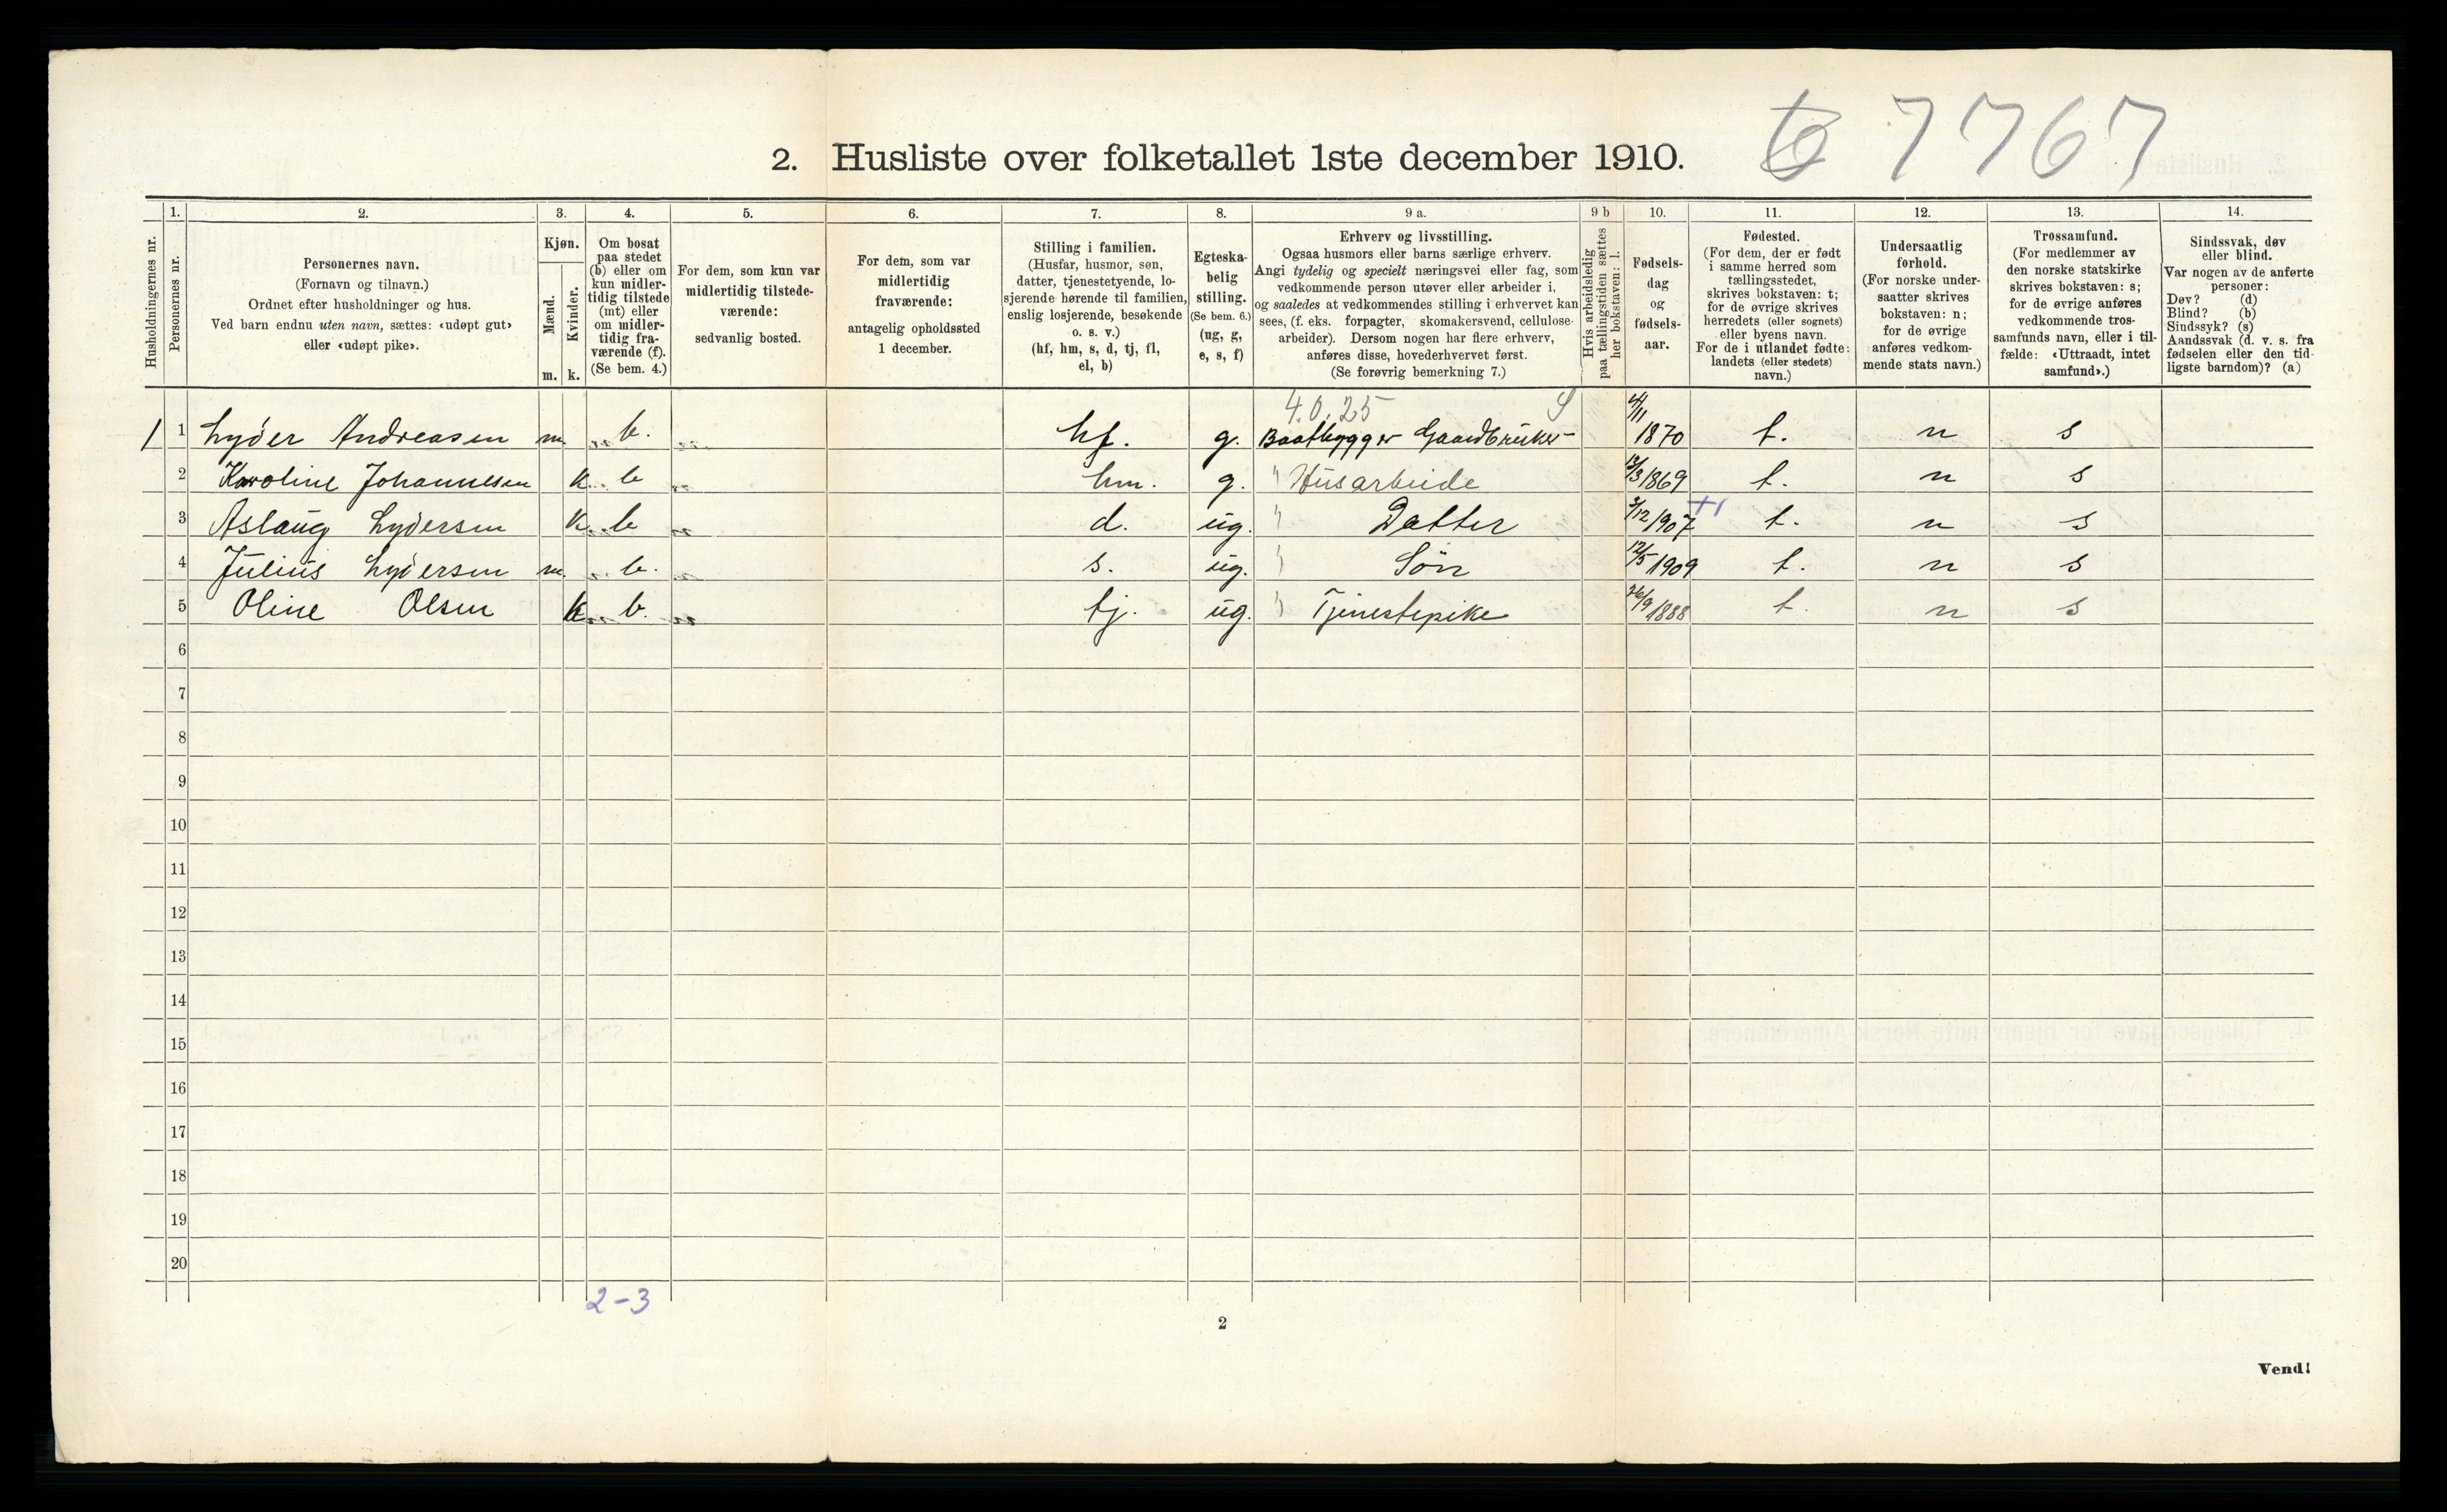 7767
2. Husliste over folketallet 1ste december 1910.
1. 2. 3. 4. 5. 6. 7. 8. 9 a. 9 b 10. 11. 12. 13. 14.
Husholdningernes nr.
Personernes nr.
Personernes navn.
(Fornavn og tilnavn.)
Ordnet efter husholdninger og hus.
Ved barn endnu uten navn, sættes: «udøpt gut»
eller «udøpt pike».
Kjøn.
Mænd.
Kvinder.
m. k.
Om bosat
paa stedet
(b) eller om
kun midler-
tidig tilstede
(mt) eller
om midler-
tidig fra-
værende (f).
(Se bem. 4.)
For dem, som kun var
midlertidig tilstede-
værende:
sedvanlig bosted.
For dem, som var
midlertidig
fraværende:
antagelig opholdssted
1 december.
Stilling i familien.
(Husfar, husmor, søn,
datter, tjenestetyende, lo-
sjerende hørende til familien,
enslig losjerende, besøkende
o. s. v.)
(hf, hm, s, d, tj, fl,
el, b)
Egteska-
belig
stilling.
(Se bem. 6.)
(ug, g,
e, s, f)
Erhverv og livsstilling.
Ogsaa husmors eller barns særlige erhverv.
Angi tydelig og specielt næringsvei eller fag, som
vedkommende person utøver eller arbeider i,
og saaledes at vedkommendes stilling i erhvervet kan
sees, (f. eks. forpagter, skomakersvend, cellulose-
arbeider). Dersom nogen har flere erhverv,
anføres disse, hovederhvervet først.
(Se forøvrig bemerkning 7.)
Hvis arbeidsledig
paa tællingstiden sættes
her bokstaven: l.
Fødsels-
dag
og
fødsels-
aar.
Fødested.
(For dem, der er født
i samme herred som
tællingsstedet,
skrives bokstaven: t;
for de øvrige skrives
herredets (eller sognets)
eller byens navn.
For de i utlandet fødte:
landets (eller stedets)
navn.)
Undersaatlig
forhold.
(For norske under-
saatter skrives
bokstaven: n;
for de øvrige
anføres vedkom-
mende stats navn.)
Trossamfund.
(For medlemmer av
den norske statskirke
skrives bokstaven: s;
for de øvrige anføres
vedkommende tros-
samfunds navn, eller i til-
fælde: «Uttraadt, intet
samfund».)
Sindssvak, døv
eller blind.
Var nogen av de anførte
personer:
Døv? (d)
Blind? (b)
Sindssyk? (s)
Aandssvak (d. v. s. fra
fødselen eller den tid-
ligste barndom)? (a)
4.0.25
1 1 Lyder Andreasen m. b. hf. g. Baatbygger Gaardbruker 4/11 1870 t. n s
2 Karoline Johannesen k b hm. g. " Husarbeide 13/3 1869 t. n s
3 Aslaug Lydersen k b d. ug. " Datter 3/12 1907 +1 t. n s
4 Julius Lydersen m. b. s. ug. " Søn 12/5 1909 t. n s
5 Oline Olsen k b. tj. ug. " Tjenestepike 26/9 1888 t. n s
6
7
8
9
10
11
12
13
14
15
16
17
18
19
20
2-3
2
Vend!